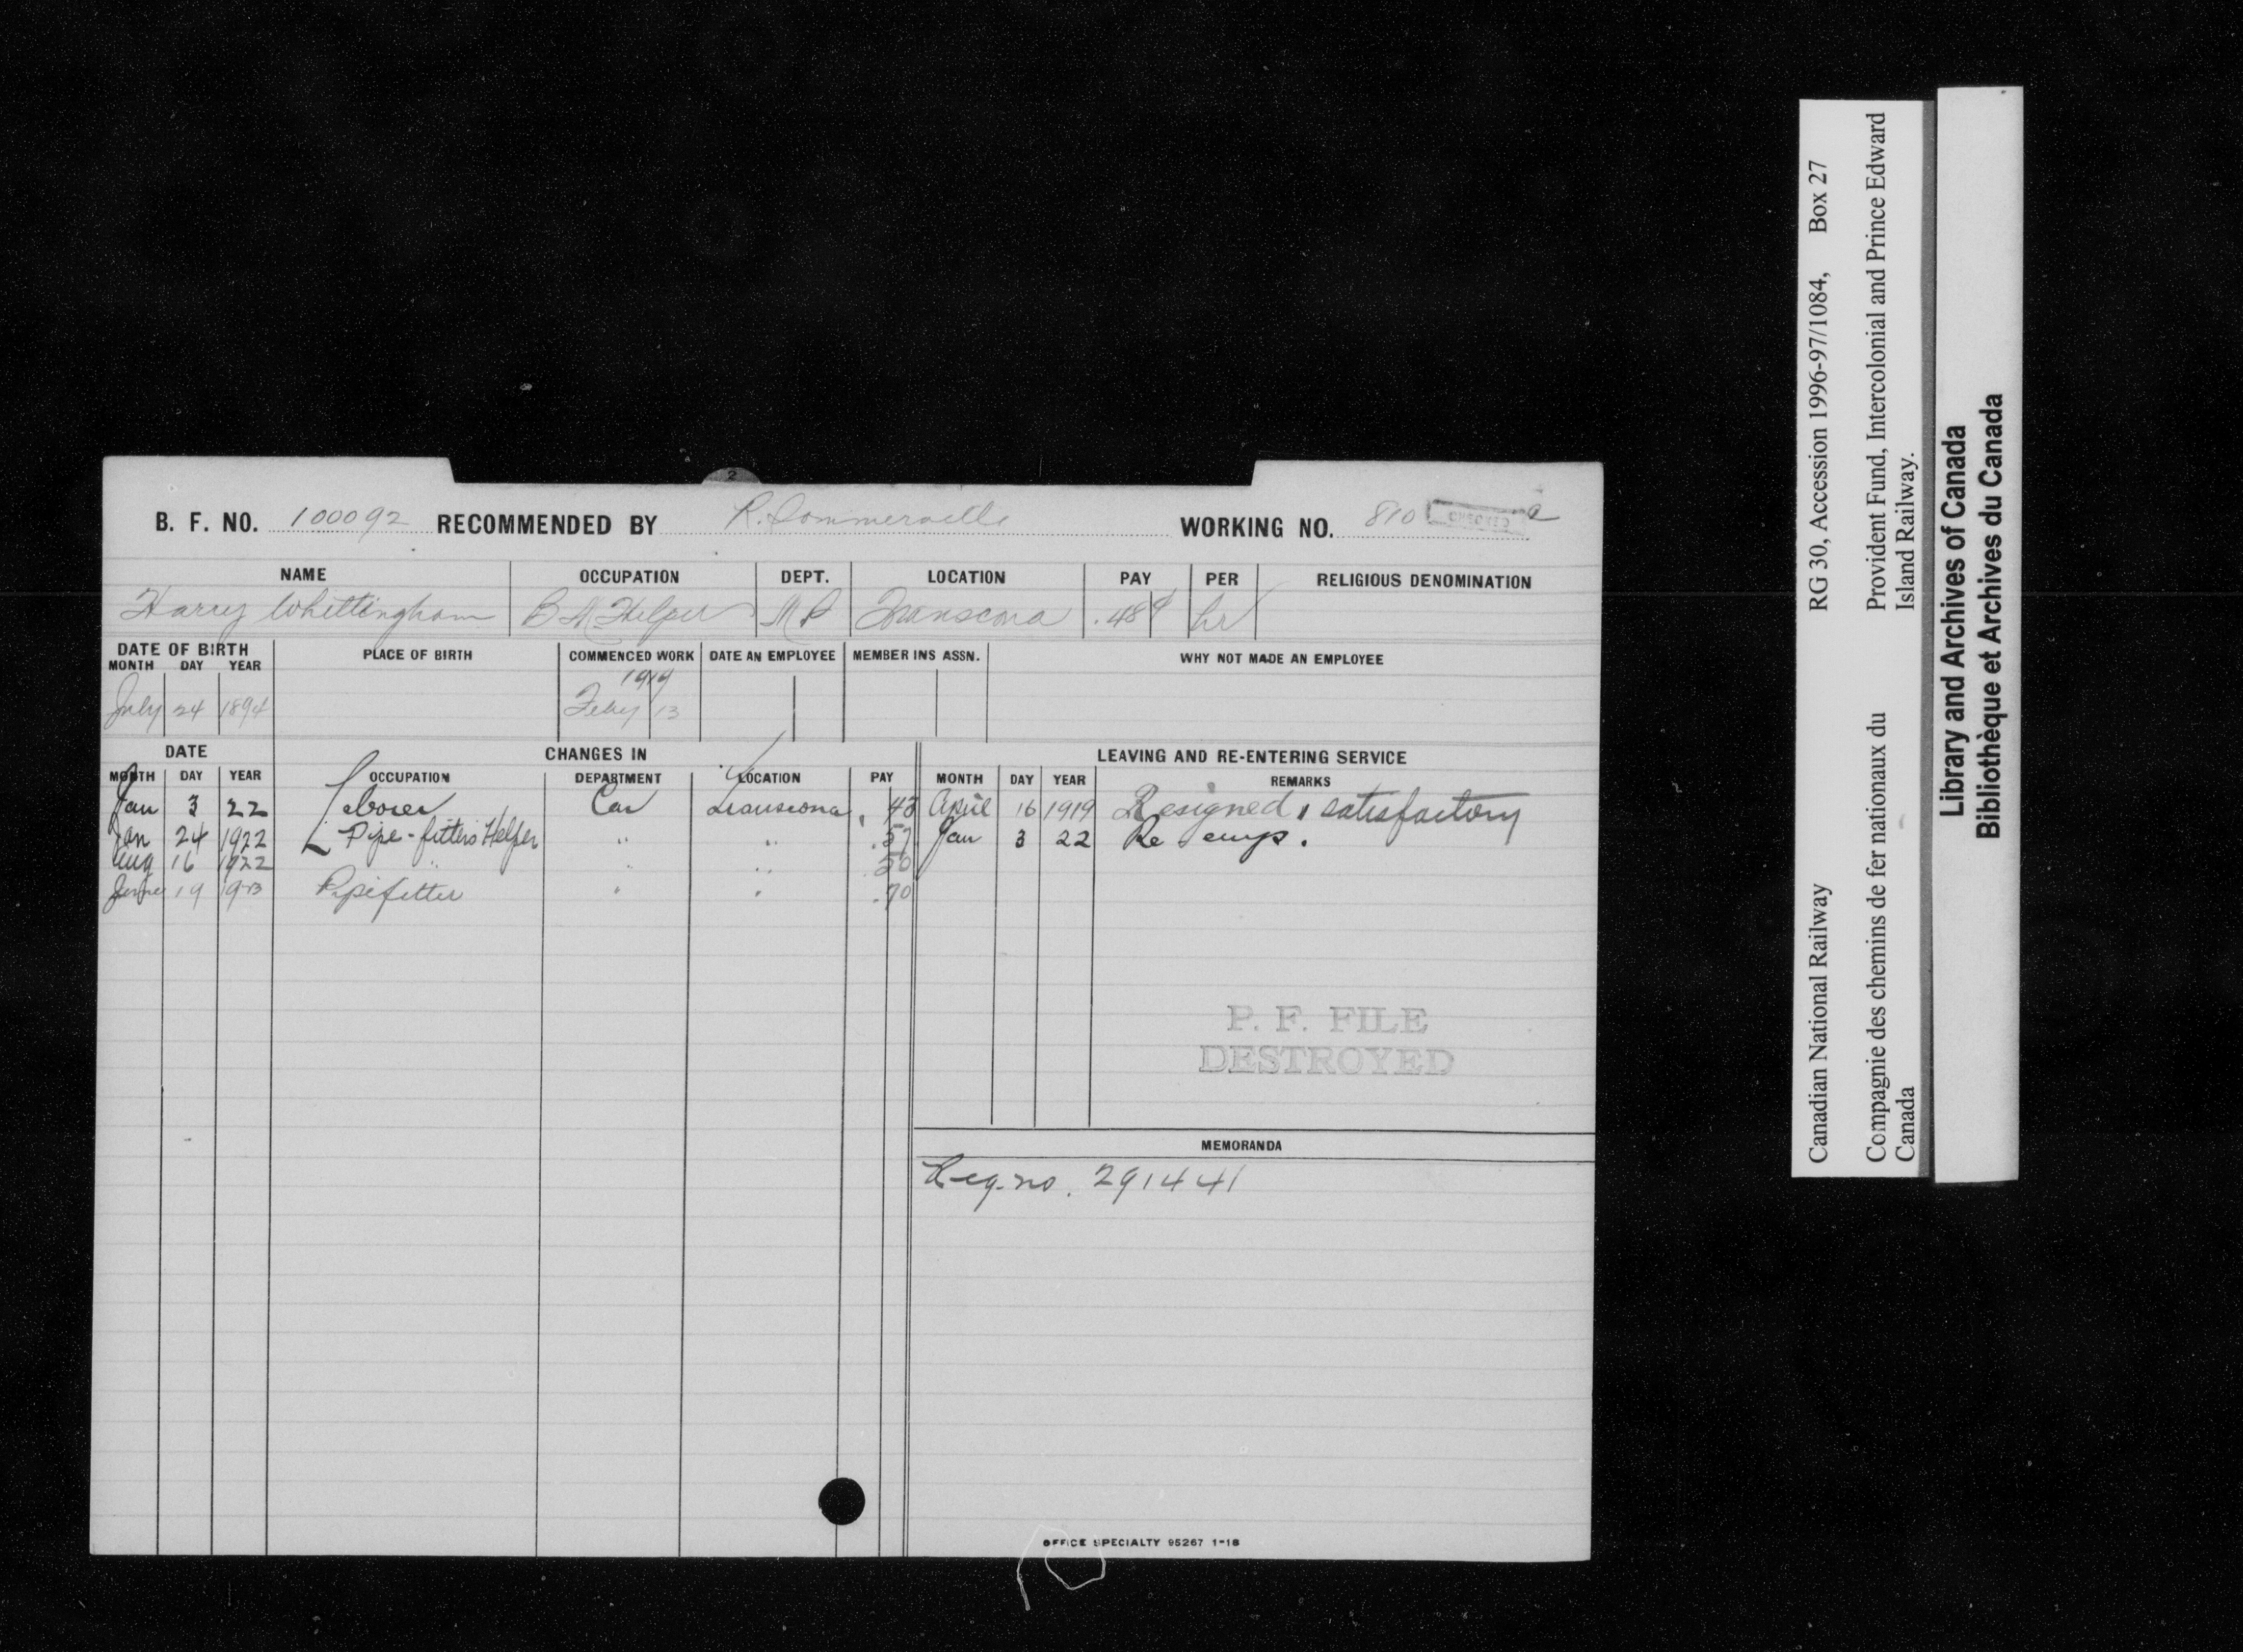 2
B. F. NO. 100092 RECOMMENDED BY R. Sommerville WORKING NO. 810 CHECKED a
NAME OCCUPATION DEPT. LOCATION PAY PER RELIGIOUS DENOMINATION
Harry Whittingham B M Helper M P Transcona .48¢ hr
DATE OF BIRTH PLACE OF BIRTH COMMENCED WORK DATE AN EMPLOYEE MEMBER INS ASSN. WHY NOT MADE AN EMPLOYEE
MONTH DAY YEAR
1919
July 24 1894 Feby 13
DATE CHANGES IN LEAVING AND RE-ENTERING SERVICE
MONTH DAY YEAR OCCUPATION DEPARTMENT LOCATION PAY MONTH DAY YEAR REMARKS
Jan 3 22 Laborer Car Transcona .43 April 16 1919 Resigned, satisfactory
Jan 24 1922 Pipe-fitters Helper " " .57 Jan 3 22 Re emp.
Aug 16 1922 " " " .50
June 19 Pipefitter " " .70
P. F. FILE
DESTROYED
MEMORANDA
Reg. no. 291441
OFFICE SPECIALTY 95267 1-18
Canadian National Railway RG 30, Accession 1996-97/1084, Box 27
Compagnie des chemins de fer nationaux du Canada
Provident Fund, Intercolonial and Prince Edward Island Railway.
Library and Archives of Canada
Bibliothèque et Archives du Canada